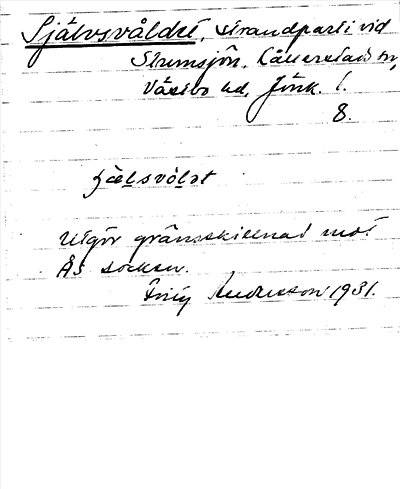 Självsvåldet, strandparti vid
Strumsjön. Källerstads sn,
Västbo hd, Jönk. l.
8.
jälsvólət
Utgör gränsskillnad mot
Ås socken.
Andersson 1931.